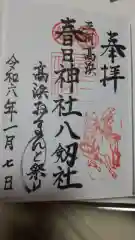 奉拝
三州高浜
春日神社八劔社
高浜おまんと祭り
令和六年一月七日